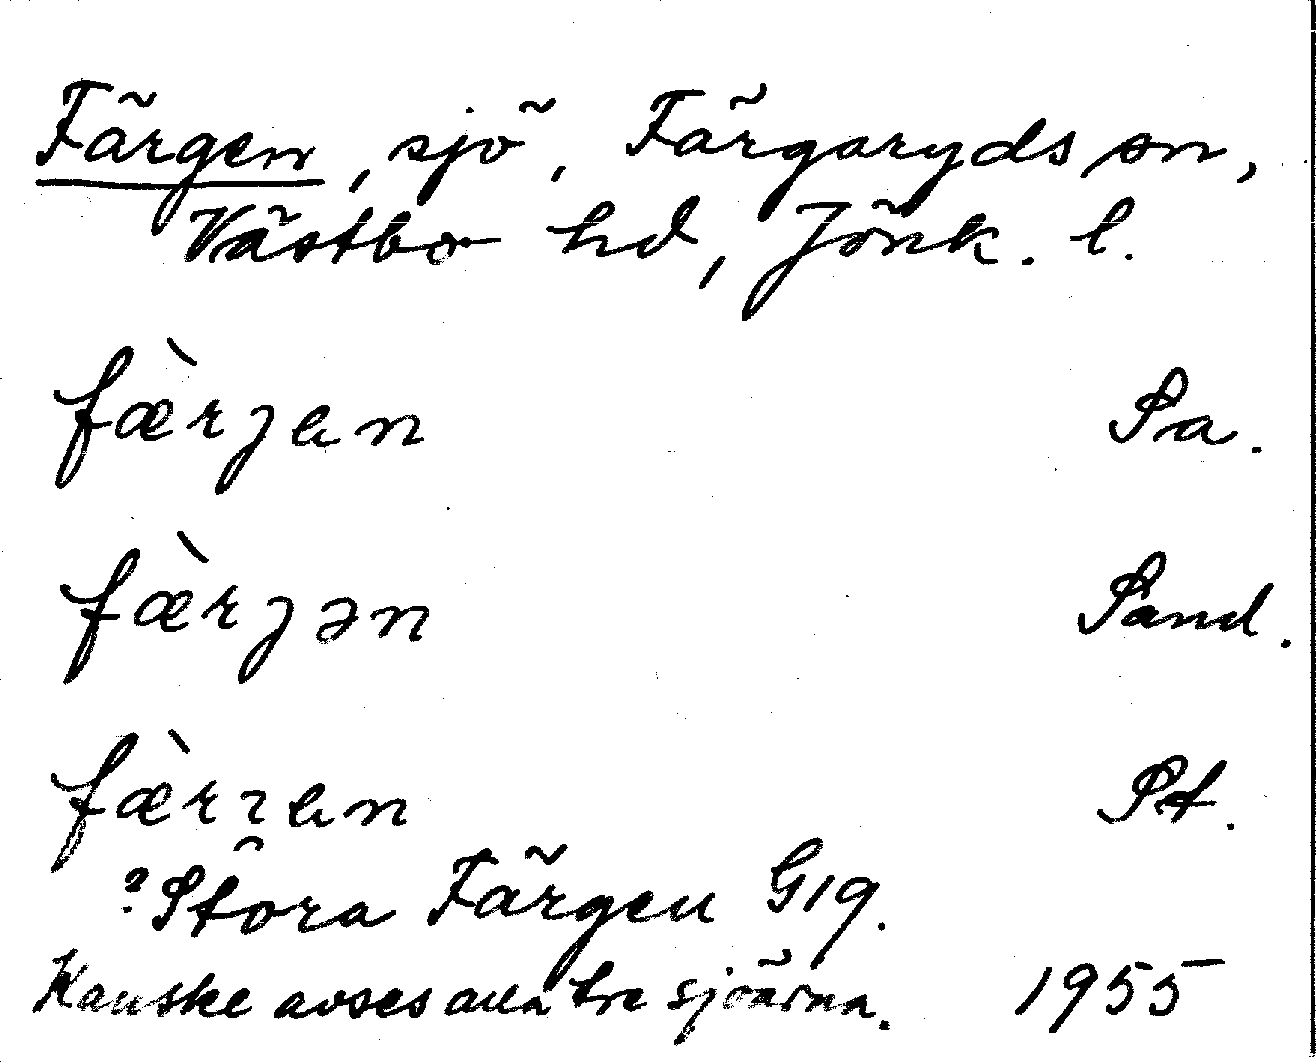 Färgen, sjö, Färgaryds sn,
Västbo hd, Jönk. l.
fæ̀rjen Sa.
fæ̀rjən Sand.
fæ̀rɿen St.
? Stora Färgen G19.
Kanske avses alla tre sjöarna. 1955